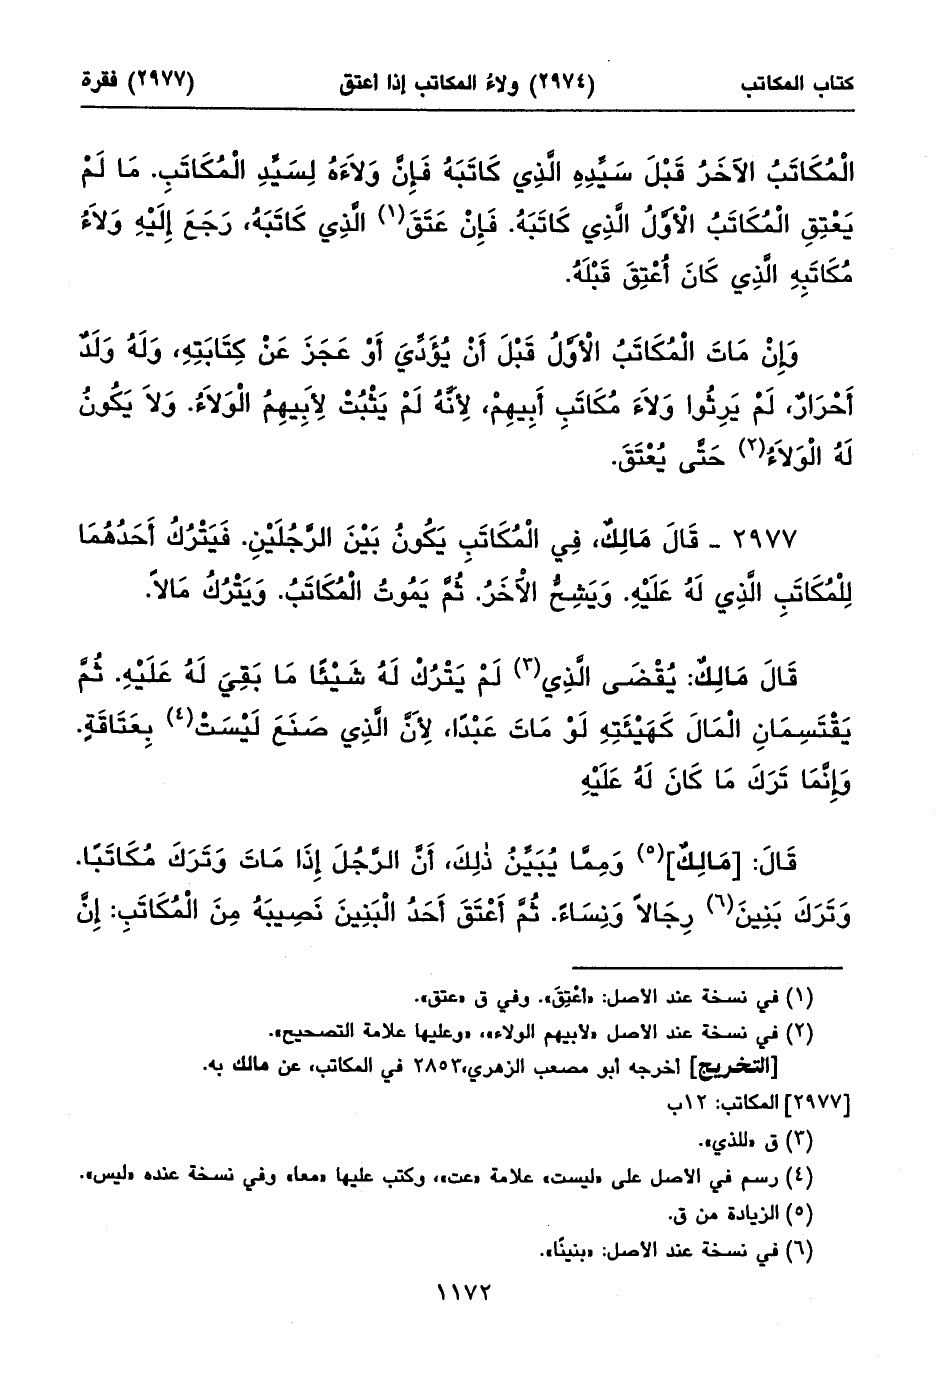 كتاب المكاتب (٢٩٧٤) ولاءُ المكاتب إذا أعتق (٢٩٧٧) فقرة
الْمُكَاتَبُ الآخَرُ قَبْلَ سَيِّدِهِ الَّذِي كَاتَبَهُ فَإِنَّ وَلاَءَهُ لِسَيِّدِ الْمُكَاتَبِ. مَا لَمْ
يَعْتِقِ الْمُكَاتَبُ الْأَوَّلُ الَّذِي كَاتَبَهُ. فَإِنْ عَتَقَ(١) الَّذِي كَاتَبَهُ، رَجَعَ إِلَيْهِ وَلاَءُ
مُكَاتَبِهِ الَّذِي كَانَ أُعْتِقَ قَبْلَهُ.
وَإِنْ مَاتَ الْمُكَاتَبُ الْأَوَّلُ قَبْلَ أَنْ يُؤَدِّيَ أَوْ عَجَزَ عَنْ كِتَابَتِهِ، وَلَهُ وَلَدٌ
أَحْرَارٌ، لَمْ يَرِثُوا وَلاَءَ مُكَاتَبِ أَبِيهِمْ، لِأَنَّهُ لَمْ يَثْبُتْ لِأَبِيهِمُ الْوَلاَءُ. وَلاَ يَكُونُ
لَهُ الْوَلاَءُ(٢) حَتَّى يُعْتَقَ.
٢٩٧٧ - قَالَ مَالِكٌ، فِي الْمُكَاتَبِ يَكُونُ بَيْنَ الرَّجُلَيْنِ. فَيَتْرُكُ أَحَدُهُمَا
لِلْمُكَاتَبِ الَّذِي لَهُ عَلَيْهِ. وَيَشِحُّ الْآخَرُ. ثُمَّ يَمُوتُ الْمُكَاتَبُ. وَيَتْرُكُ مَالاً.
قَالَ مَالِكٌ: يُقْضَى الَّذِي(٣) لَمْ يَتْرُكْ لَهُ شَيْئًا مَا بَقِيَ لَهُ عَلَيْهِ. ثُمَّ
يَقْتَسِمَانِ الْمَالَ كَهَيْئَتِهِ لَوْ مَاتَ عَبْدًا، لِأَنَّ الَّذِي صَنَعَ لَيْسَتْ(٤) بِعَتَاقَةٍ.
وَإِنَّمَا تَرَكَ مَا كَانَ لَهُ عَلَيْهِ
قَالَ: [مَالِكٌ](٥) وَمِمَّا يُبَيِّنُ ذٰلِكَ، أَنَّ الرَّجُلَ إِذَا مَاتَ وَتَرَكَ مُكَاتَبًا.
وَتَرَكَ بَنِينَ(٦) رِجَالاً وَنِسَاءً. ثُمَّ أَعْتَقَ أَحَدُ الْبَنِينَ نَصِيبَهُ مِنَ الْمُكَاتَبِ: إِنَّ
(١) في نسخة عند الأصل: «أُعْتِقَ». وفي ق «عتق».
(٢) في نسخة عند الأصل «لأبيهم الولاء»، «وعليها علامة التصحيح».
[التخريج] أخرجه أبو مصعب الزهري،٢٨٥٣ في المكاتب، عن مالك به.
[٢٩٧٧] المكاتب: ١٢ب
(٣) ق «للذي».
(٤) رسم في الأصل على «ليست» علامة «عت»، وكتب عليها «معا» وفي نسخة عنده «ليس».
(٥) الزيادة من ق.
(٦) في نسخة عند الأصل: «بنينًا».
١١٧٢